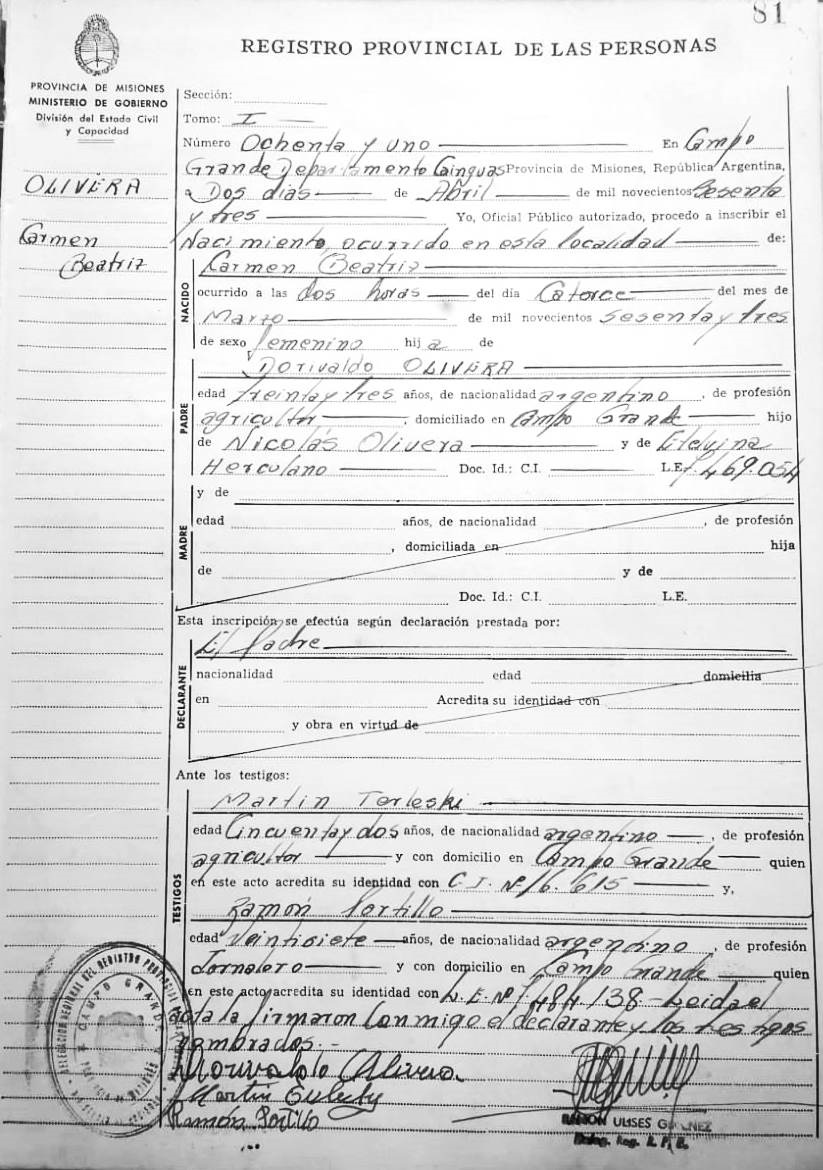 81
REGISTRO PROVINCIAL DE LAS PERSONAS
PROVINCIA DE MISIONES
MINISTERIO DE GOBIERNO
División del Estado Civil
y Capacidad
OLIVERA
Carmen
Beatriz
Sección:
Tomo: I
Número Ochenta y uno En Campo
Grande Departamento Cainguas Provincia de Misiones, República Argentina,
a Dos dias de Abril de mil novecientos Sesenta
y tres Yo, Oficial Público autorizado, procedo a inscribir el
Nacimiento, ocurrido en esta localidad de:
NACIDO
Carmen Beatriz
ocurrido a las dos horas del día Catorce del mes de
Marzo de mil novecientos Sesenta y tres
de sexo femenino hija de
PADRE
Dorivaldo OLIVERA
edad treinta y tres años, de nacionalidad argentino, de profesión
agricultor, domiciliado en Campo Grande hijo
de Nicolás Olivera y de Etelvina
Herculano Doc. Id.: C.I. L.E. 7.469.054
MADRE
y de
edad años, de nacionalidad , de profesión
, domiciliada en hija
de y de
Doc. Id.: C.I. L.E.
Esta inscripción se efectúa según declaración prestada por:
DECLARANTE
El Padre
nacionalidad edad domicilia
en Acredita su identidad con
y obra en virtud de
Ante los testigos:
TESTIGOS
Martin Terleski
edad Cincuenta y dos años, de nacionalidad argentino, de profesión
agricultor y con domicilio en Campo Grande quien
en este acto acredita su identidad con C.I. Nº 16.615 y,
Ramón Portillo
edad Veintisiete años, de nacionalidad argentino, de profesión
Jornalero y con domicilio en Campo Grande quien
en este acto acredita su identidad con L.E. Nº 7.484.138 - Leida el
acta la firmaron Conmigo el declarante y los testigos
nombrados.-
Dorivaldo Olivera
Martin
Ramón Portillo
RAMON ULISES GIMENEZ
Deleg. Reg. R. P. P.
DELEGACION REGIONAL DEL REGISTRO PROVINCIAL
CAMPO GRANDE